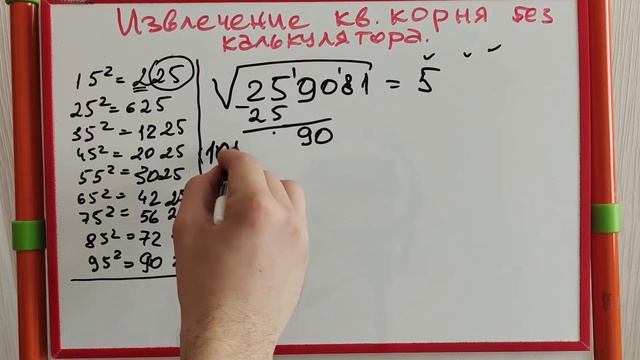 Извлечение кв. корня без
калькулятора.
15² = 225
25² = 625
35² = 1225
45² = 2025
55² = 3025
65² = 42 25
75² = 56 2
85² = 72
95² = 90
√25'90'81 = 5
- 25
90
10